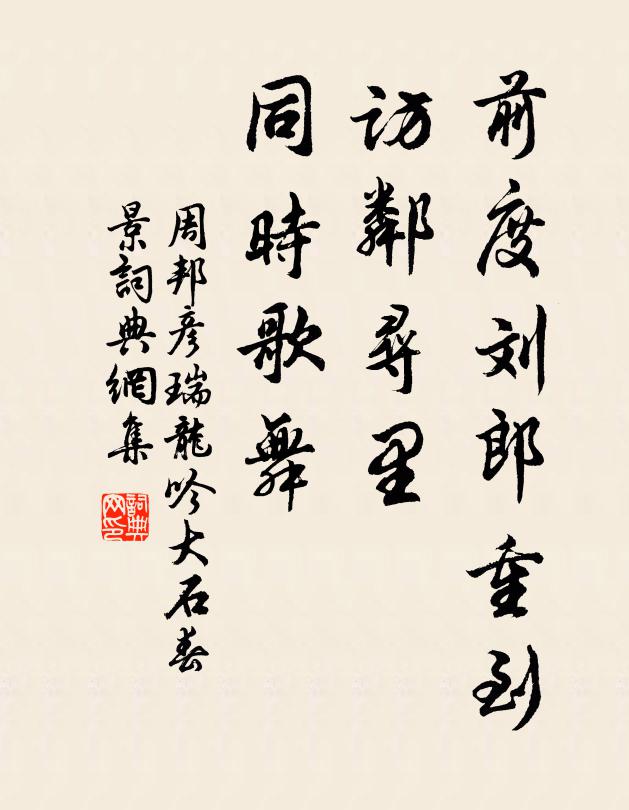 前度刘郎重到
訪鄰尋里
同時歌舞
周邦彥瑞龍吟大石春
景詞典網集
詞典网印